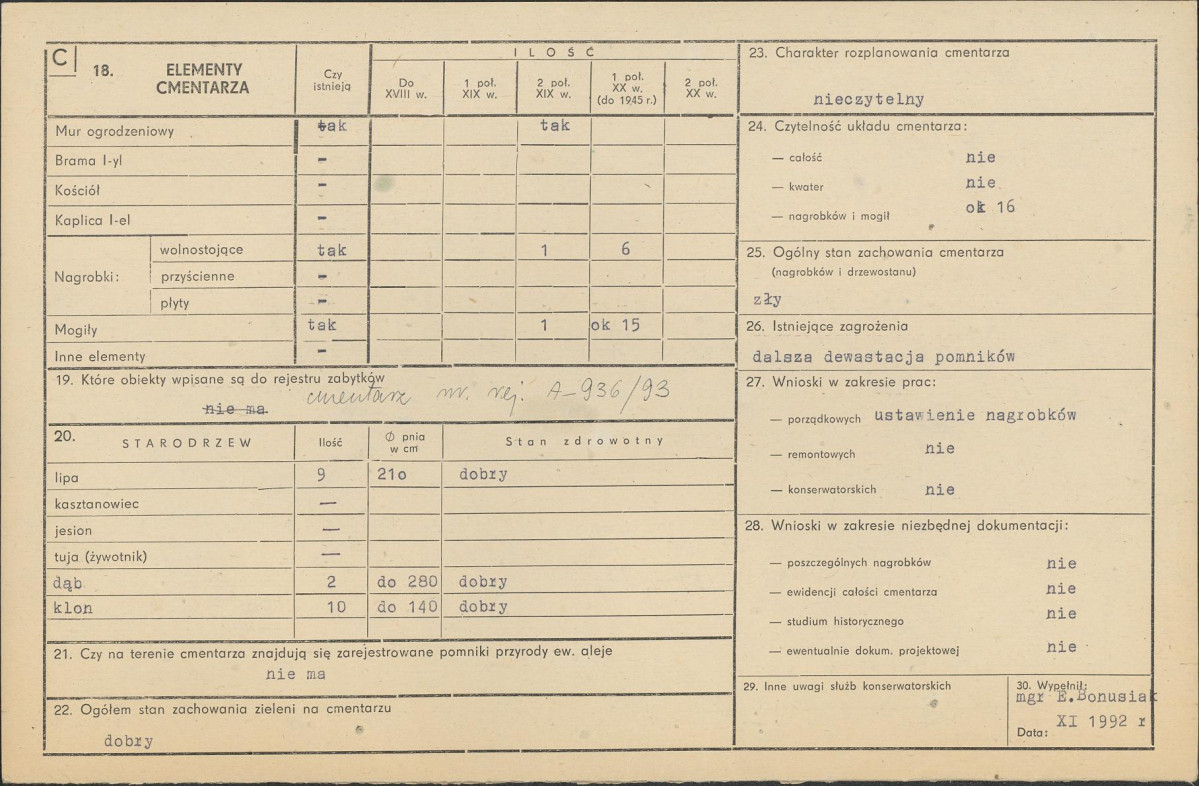 C
18. ELEMENTY CMENTARZA
Czy istnieją
ILOŚĆ
Do XVIII w.
1 poł. XIX w.
2 poł. XIX w.
1 poł. XX w. (do 1945 r.)
2 poł. XX w.
Mur ogrodzeniowy tak tak
Brama I-yl -
Kościół -
Kaplica I-el -
Nagrobki:
wolnostojące tak 1 6
przyścienne -
płyty -
Mogiły tak 1 ok 15
Inne elementy -
19. Które obiekty wpisane są do rejestru zabytków
nie ma cmentarz nr. rej. A-936/93
20. STARODRZEW Ilość Ø pnia w cm Stan zdrowotny
lipa 9 21o dobry
kasztanowiec —
jesion —
tuja (żywotnik) —
dąb 2 do 280 dobry
klon 10 do 140 dobry
21. Czy na terenie cmentarza znajdują się zarejestrowane pomniki przyrody ew. aleje
nie ma
22. Ogółem stan zachowania zieleni na cmentarzu
dobry
23. Charakter rozplanowania cmentarza
nieczytelny
24. Czytelność układu cmentarza:
— całość nie
— kwater nie
— nagrobków i mogił ok 16
25. Ogólny stan zachowania cmentarza
(nagrobków i drzewostanu)
zły
26. Istniejące zagrożenia
dalsza dewastacja pomników
27. Wnioski w zakresie prac:
— porządkowych ustawienie nagrobków
— remontowych nie
— konserwatorskich nie
28. Wnioski w zakresie niezbędnej dokumentacji:
— poszczególnych nagrobków nie
— ewidencji całości cmentarza nie
— studium historycznego nie
— ewentualnie dokum. projektowej nie
29. Inne uwagi służb konserwatorskich
30. Wypełnił:
mgr E.Bonusiak
XI 1992 r
Data: